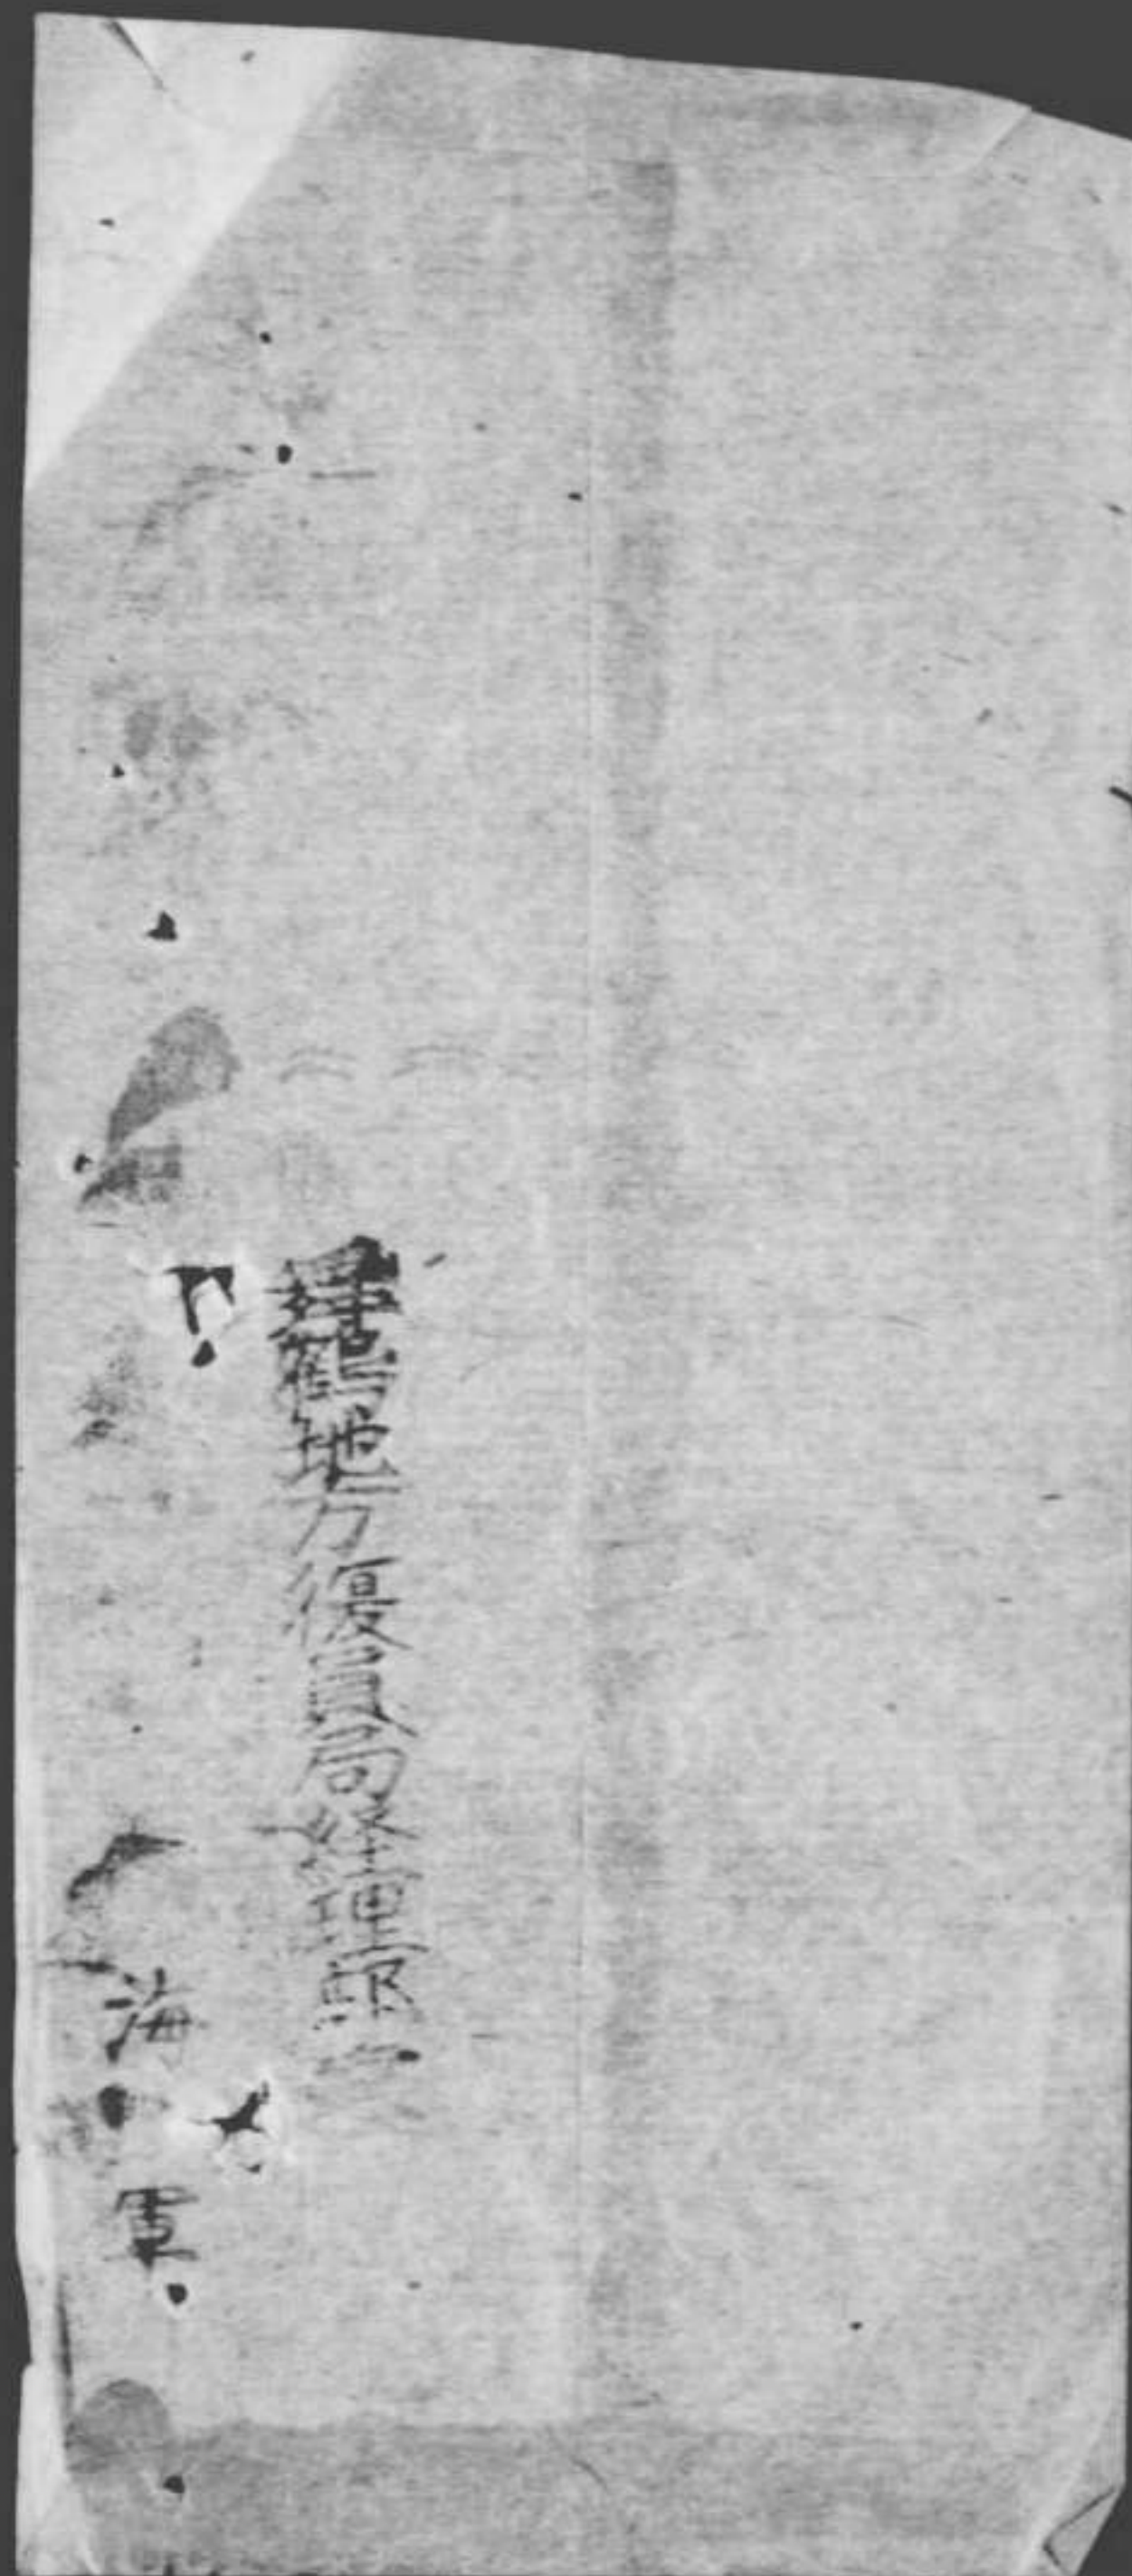 舞鶴地方復員局経理部
海軍